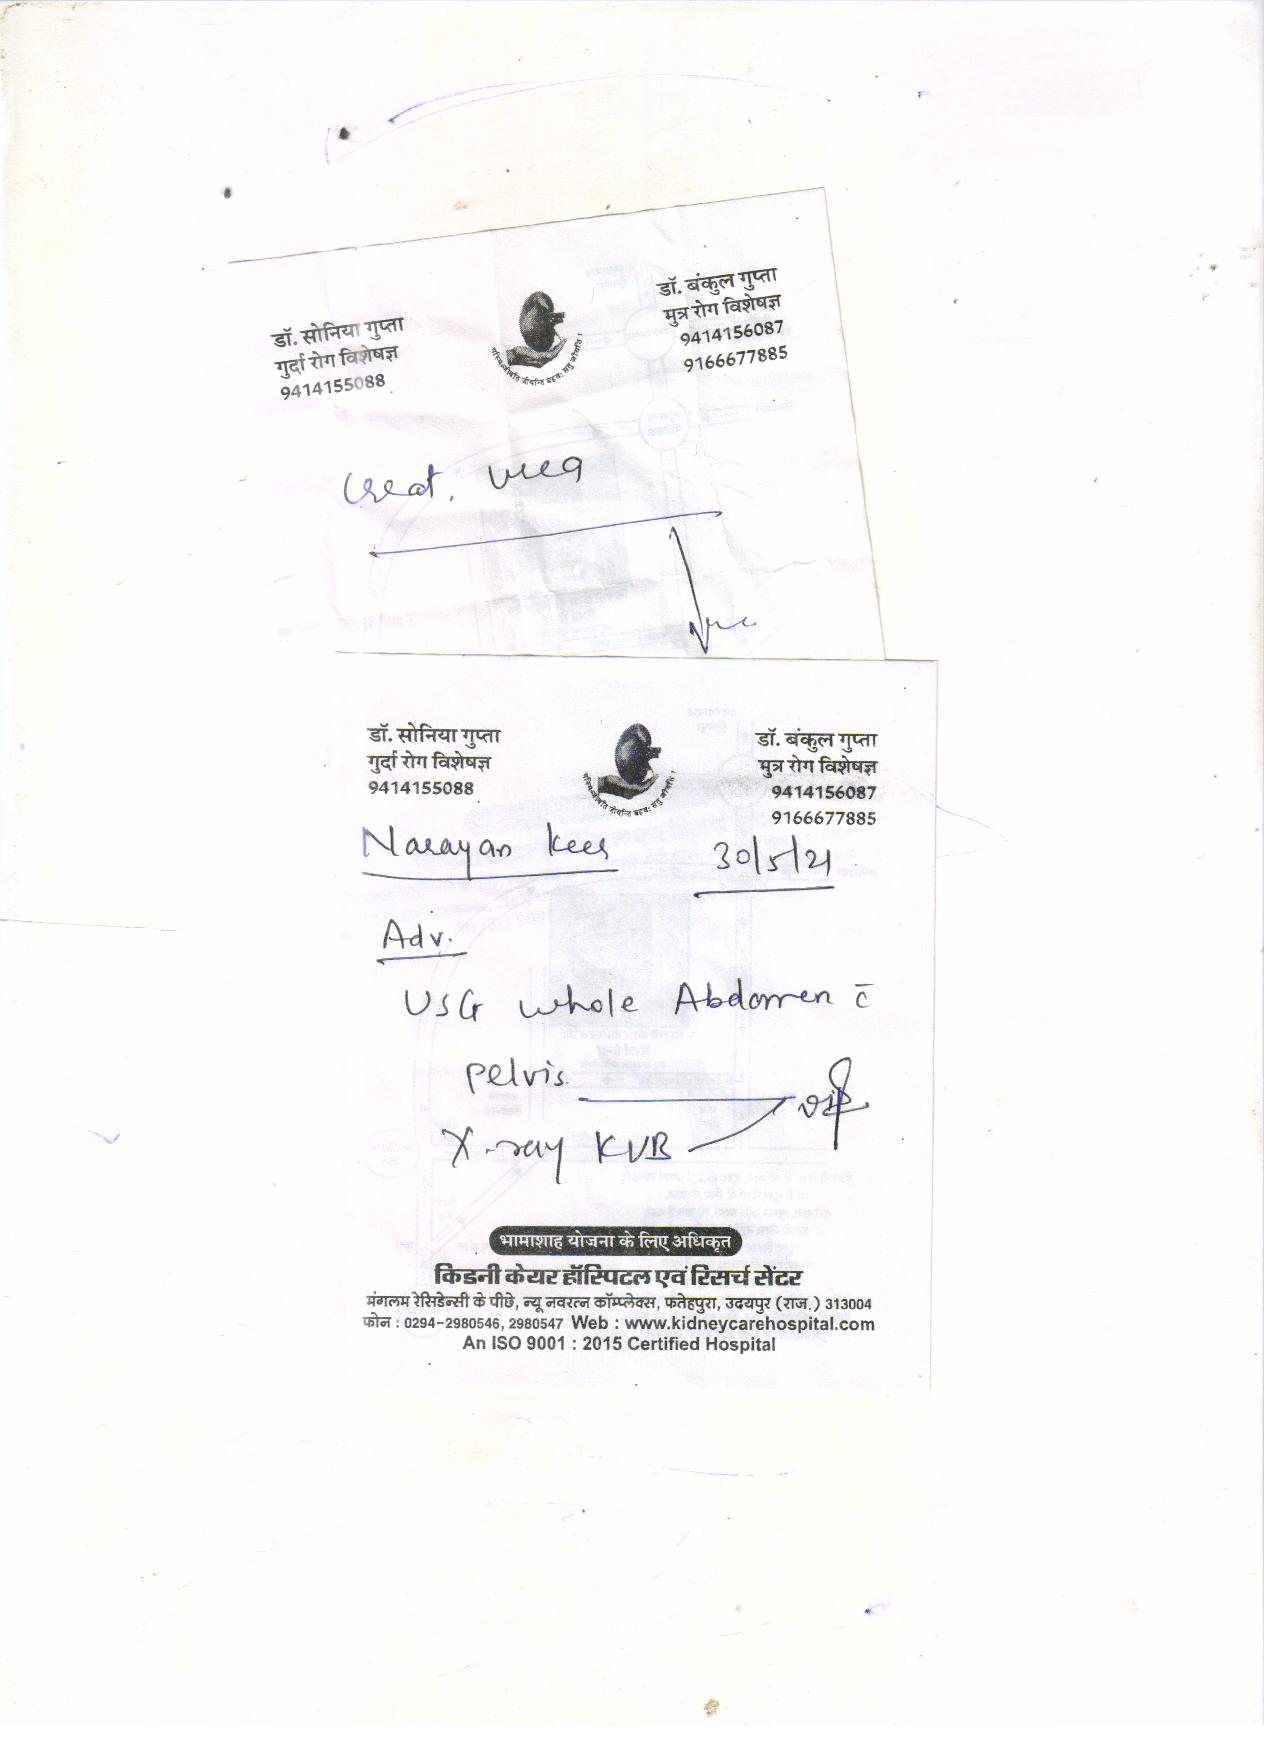 डॉ. सोनिया गुप्ता
गुर्दा रोग विशेषज्ञ
9414155088
डॉ. बंकुल गुप्ता
मुत्र रोग विशेषज्ञ
9414156087
9166677885
Creat. Urea
डॉ. सोनिया गुप्ता
गुर्दा रोग विशेषज्ञ
9414155088
डॉ. बंकुल गुप्ता
मुत्र रोग विशेषज्ञ
9414156087
9166677885
Narayan
30/5/21
Adv.
USG whole Abdomen c̄
Pelvis.
X-ray KUB
भामाशाह योजना के लिए अधिकृत
किडनी केयर हॉस्पिटल एवं रिसर्च सेंटर
मंगलम रेसिडेन्सी के पीछे, न्यू नवरत्न कॉम्प्लेक्स, फतेहपुरा, उदयपुर (राज.) 313004
फोन : 0294-2980546, 2980547 Web : www.kidneycarehospital.com
An ISO 9001 : 2015 Certified Hospital